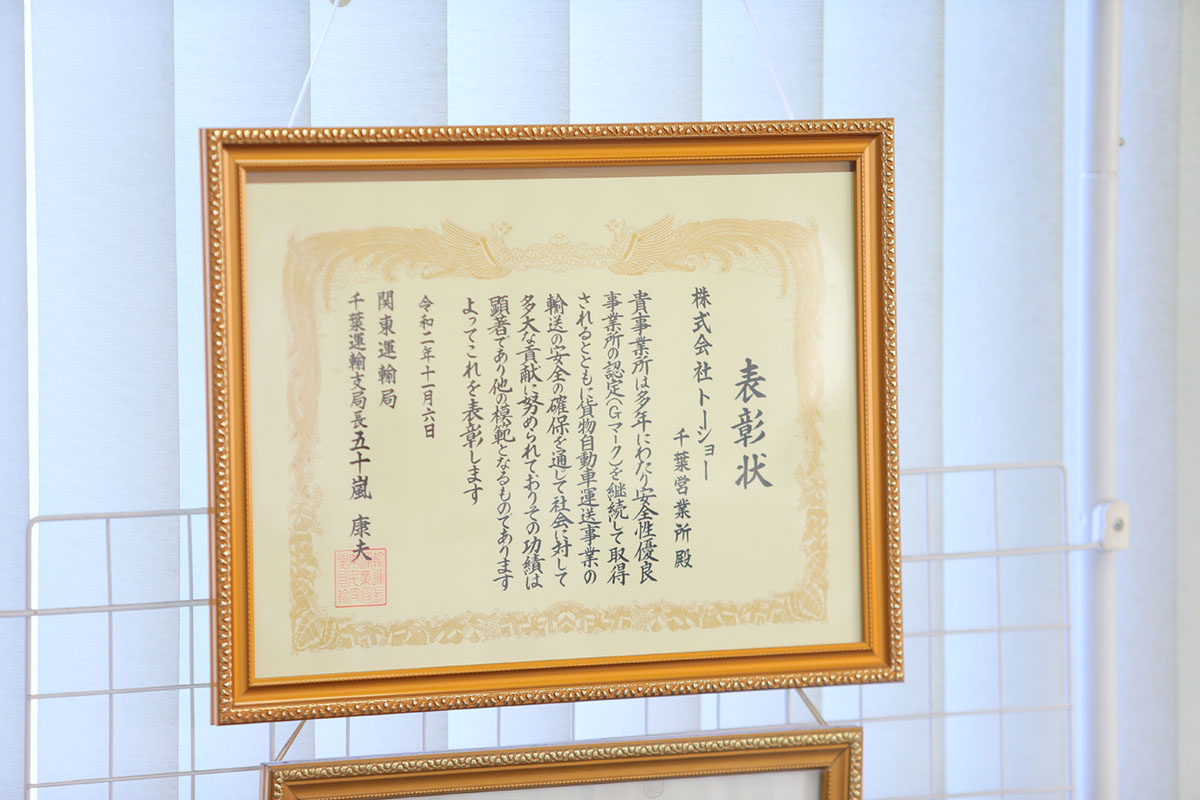 表彰状
株式会社トーショー
千葉営業所殿
貴事業所は多年にわたり安全性優良
事業所の認定(Gマーク)を継続して取得
されるとともに貨物自動車運送事業の
輸送の安全の確保を通じて社会に対して
多大な貢献に努められておりその功績は
顕著であり他の模範となるものであります
よってこれを表彰します
令和二年十一月六日
関東運輸局
千葉運輸支局長五十嵐康夫